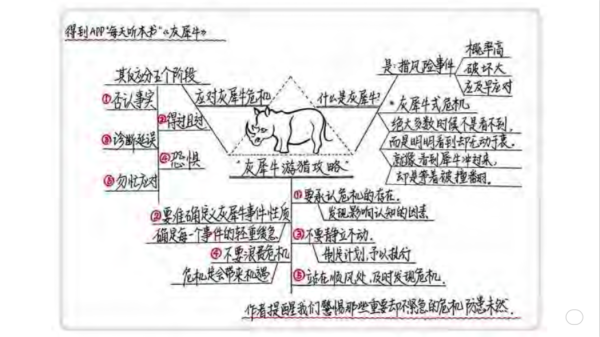 得到APP"每天听本书"《灰犀牛》
其反应分五个阶段
①否认事实
②得过且过
③诊断延误
④恐惧
⑤匆忙应对
应对灰犀牛危机
什么是灰犀牛?
是:指风险事件
概率高
破坏大
应及早应对
*灰犀牛式危机
绝大多数时候不是看不到,
而是明明看到却无动于衷。
就像看到犀牛冲过来,
却是等着被撞翻。
"灰犀牛游猎攻略"
①要承认危机的存在.
发现影响认知的因素
②要准确定义灰犀牛事件性质
确定每一个事件的轻重缓急
③不要静立不动.
制定计划,予以执行
④不要浪费危机
危机总会带来机遇
⑤站在顺风处,及时发现危机.
作者提醒我们警惕那些重要却不紧急的危机 防患未然.